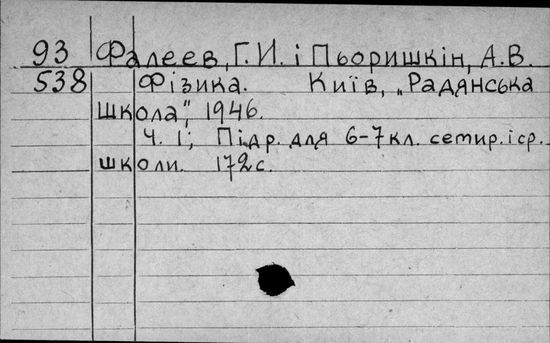 93 Фалеев, Г.И. і Пьоришкін, А.В.
538 Фізика. Київ, „Радянська
школа", 1946.
Ч. 1; Підр. для 6-7 кл. семир. і ср.
школи. 172 с.